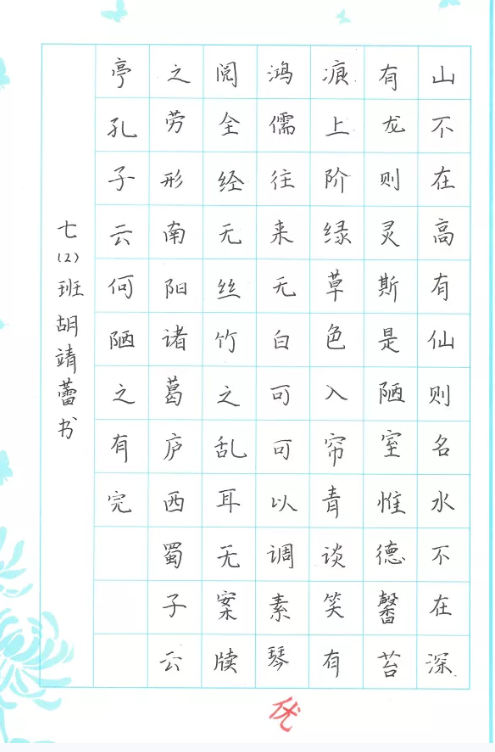 山不在高有仙则名水不在深
有龙则灵斯是陋室惟德馨苔
痕上阶绿草色入帘青谈笑有
鸿儒往来无白可可以调素琴
阅全经无丝竹之乱耳无案牍
之劳形南阳诸葛庐西蜀子云
亭孔子云何陋之有完
七(2)班胡靖蕾书
优